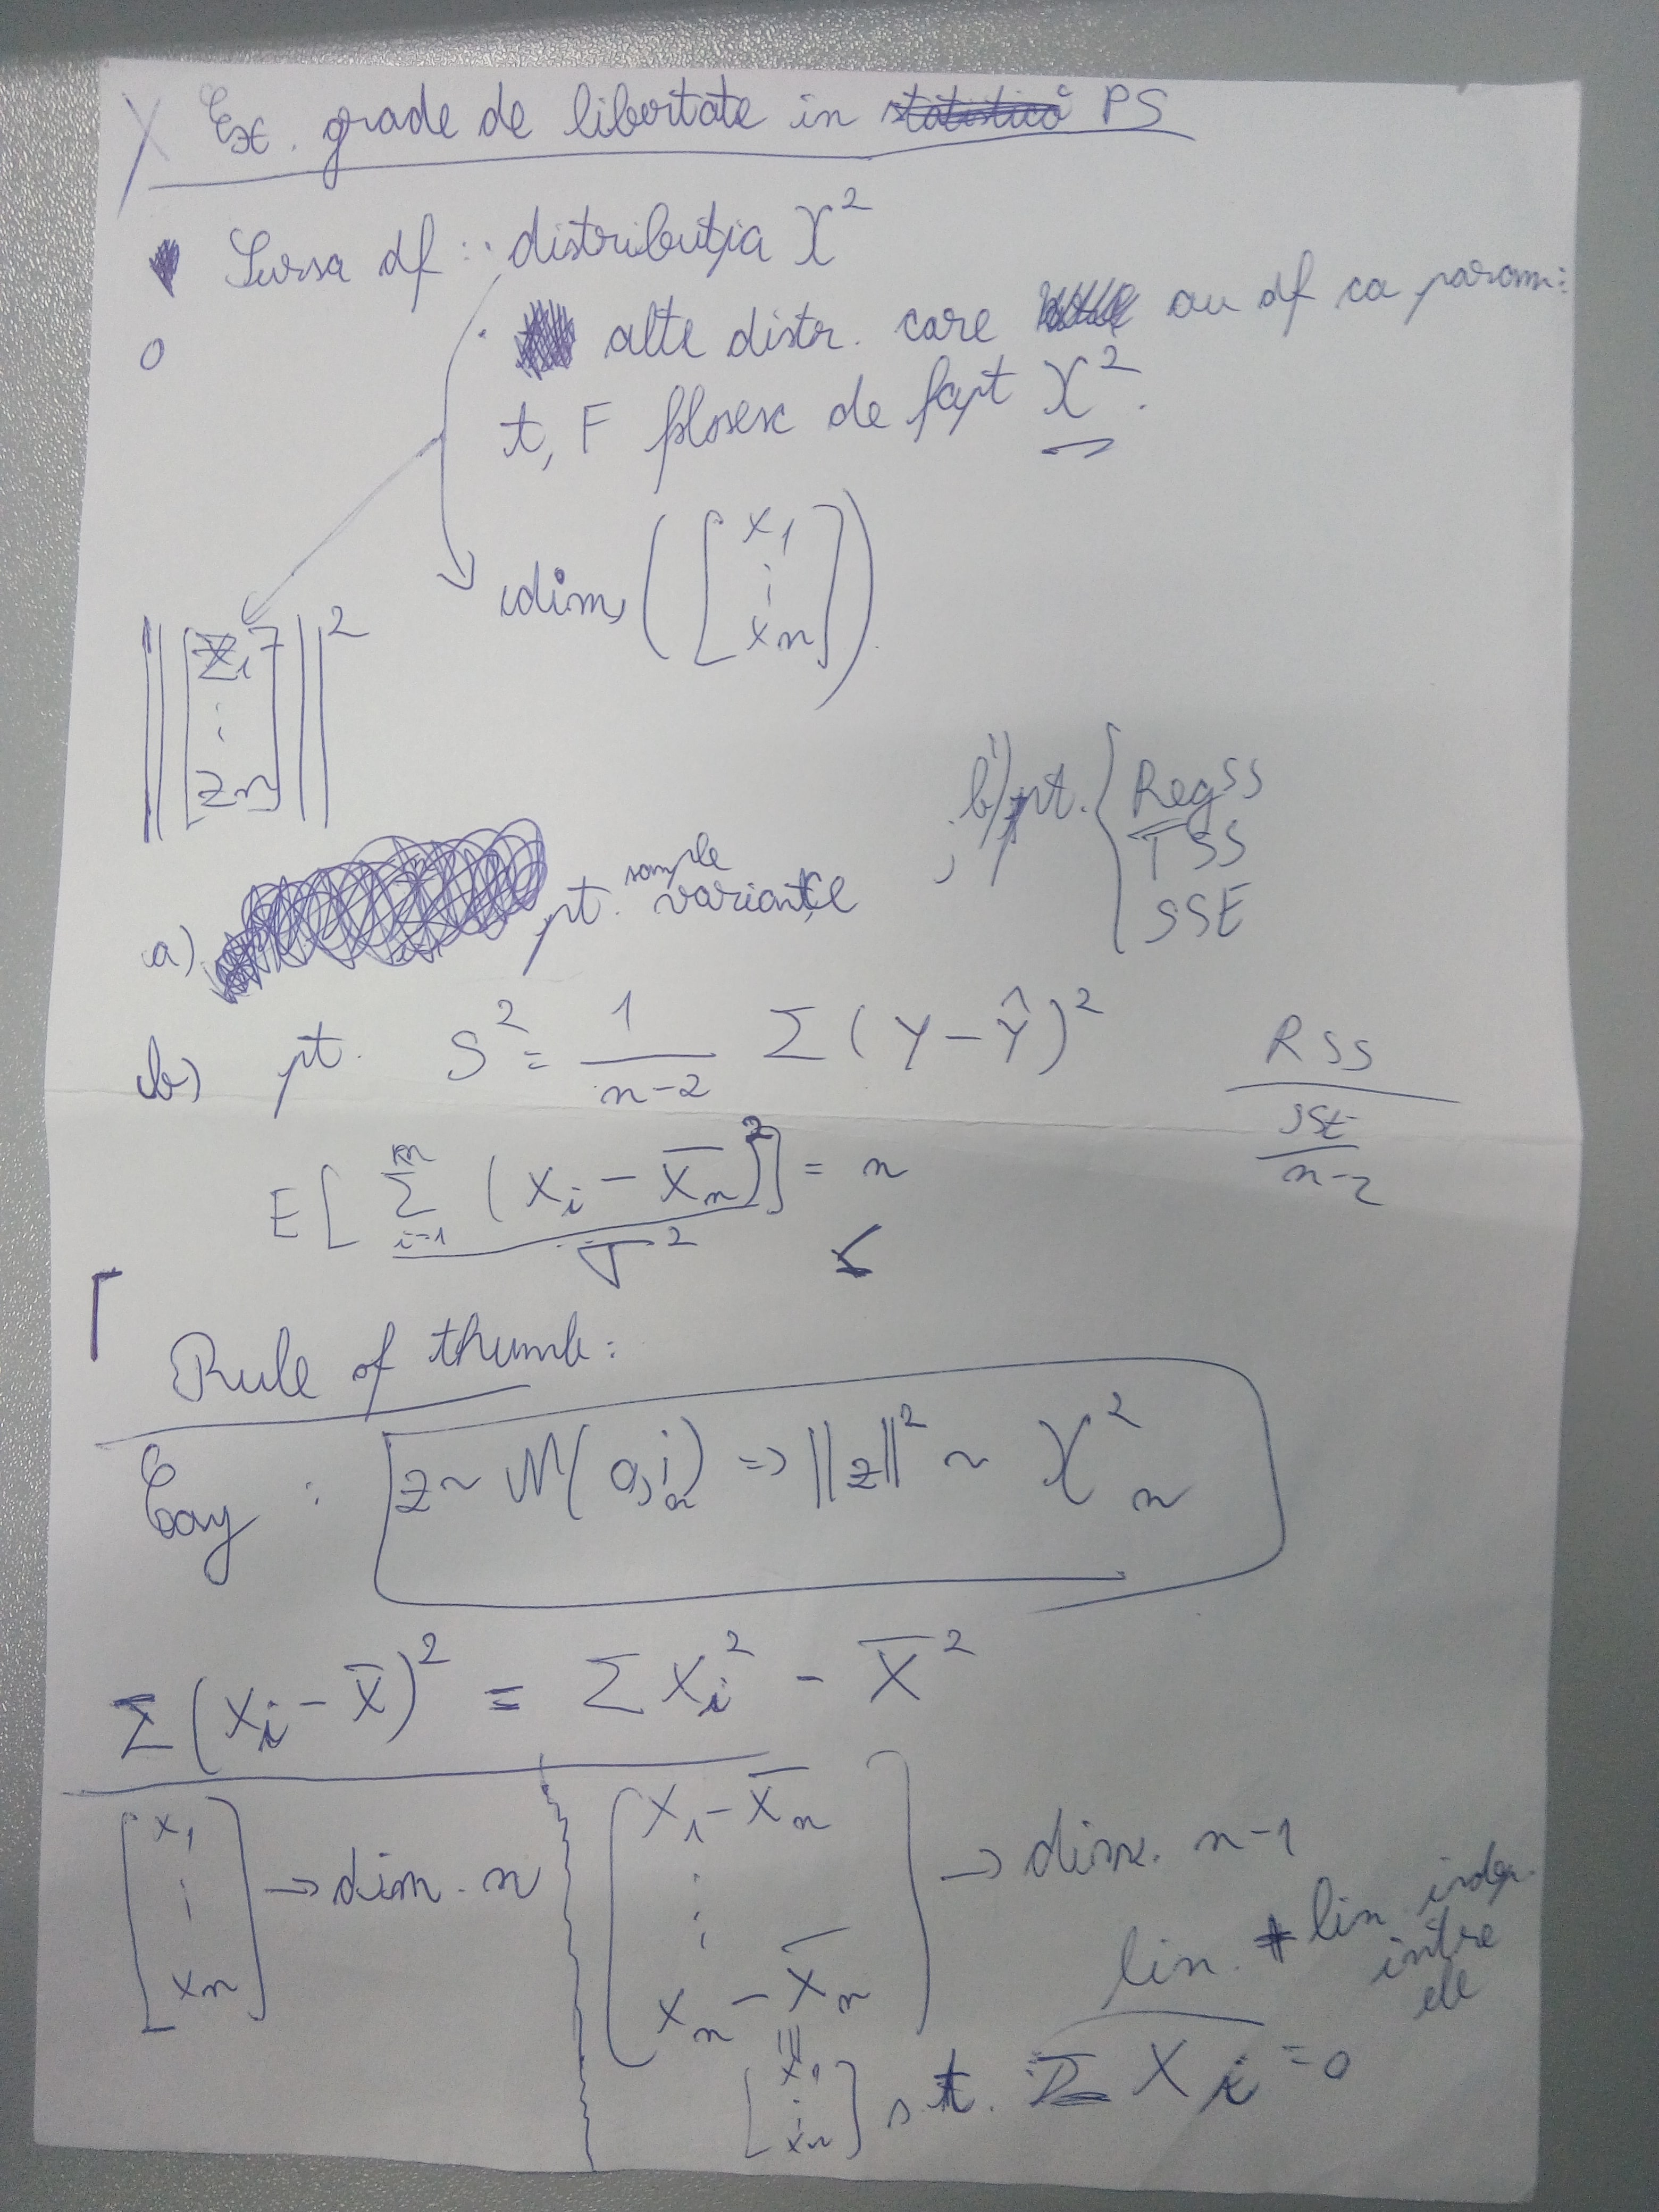 Ex. grade de libertate in statistică PS
Sursa df : distribuția χ²
alte distr. care au df ca param:
t, F folosesc de fapt χ².
dim ( [ x₁ ⋮ xₙ ] ).
|| [ z₁ ⋮ zₙ ] ||²
b') pt. { RegSS
TSS
SSE
a) pt. sample variance
b) pt. S² = 1/(n-2) Σ (Y - Ŷ)²
RSS
SSE/(n-2)
E [ Σᵢ₌₁ⁿ (Xᵢ - X̄ₙ)² / σ² ] = n
Rule of thumb:
: z ~ N(0, iₙ) => ||z||² ~ χ²ₙ
Σ (Xᵢ - X̄)² = Σ Xᵢ² - X̄²
[ x₁ ⋮ xₙ ] → dim. n
[ X₁ - X̄ₙ ⋮ Xₙ - X̄ₙ ] → dim. n-1
lin. # lin. indep. intre ele
[ x₁ ⋮ xₙ ] s.t. Σ Xᵢ = 0